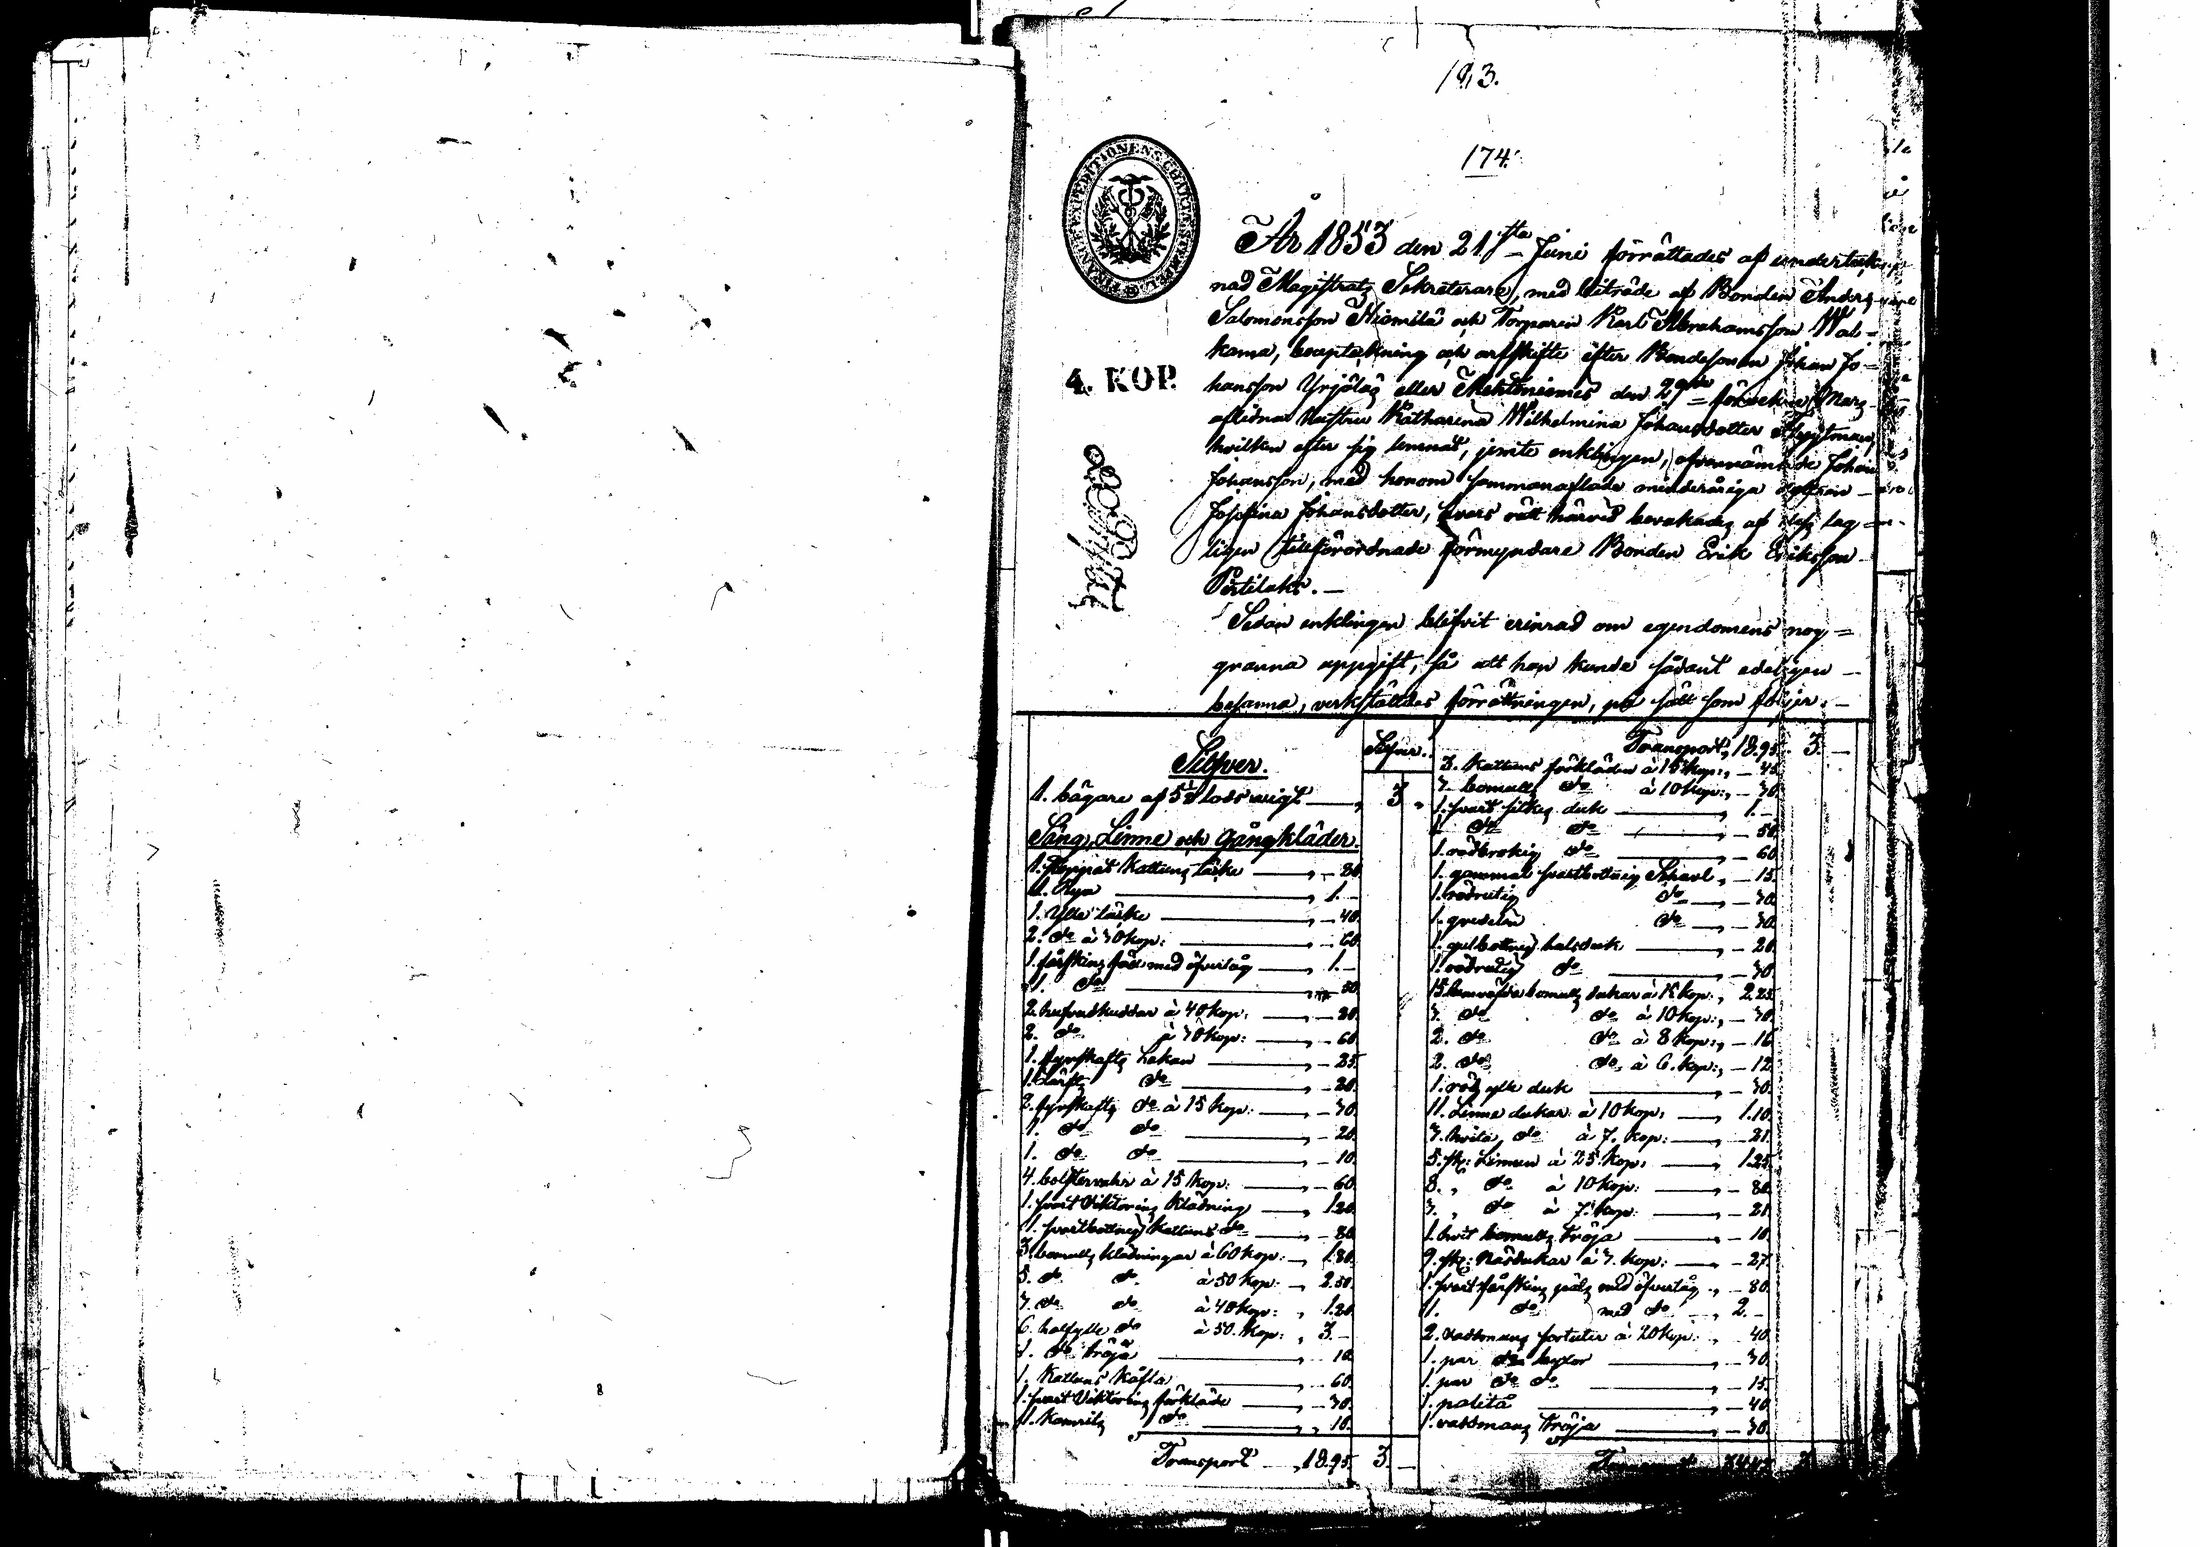 174.
FINANCE EXPEDITIONENS CHARTÆ STEMPLAG
4. KOP.
År 1853 den 21sta Juni förrättades af underteck-
nad Magistrats Sekreterare, med biträde af Bonden Anders
Salomonsson och Torparen Karl Abrahamsson Wal-
kama, bouptekning och arfskifte efter Bondesonen Johan Jo-
hansson Yrjälas eller den 29de Mars
aflidna hustru Katharina Wilhelmina Johansdotter
hvilken efter sig lemnat, jemte enklingen, ofvannämnde Johan
Johansson, med honom sammanaflade minderåriga dottren
Josefina Johansdotter, hvars rätt härvid bevakades af dess lag-
ligen tillförordnade förmyndare Bonden Erik Eriksson
Pertilaks.
Sedan enklingen blifvit erinrad om egendomens nog-
granna uppgift, så att han kunde sådant edeligen
besanna, verkställdes förrättningen, på sätt som följer.
Silfver.
Silfver.
1. bägare af 5½ lods vigt 3
Säng, Linne och Gångkläder.
1. stoppat Kattuns täcke 80.
1. Rya 1.
1. Ylle täcke 40.
2. do à 30 kop: 60.
1. fårskins fäll med öfvertåg 1.
1. do 50.
2. hufvudkuddar à 40 kop: 80.
2. do à 30 kop: 60.
1. fyrskafts Lakan 25.
1. Lärfts do 20.
2. fyrskafts do à 15 kop: 30.
1. do do 20.
1. do do 10.
4. bolstervahr à 15 kop: 60.
1. svart Viktorins Klädning 1.20.
1. svartbottnig Kattuns do 80.
3. bomulls klädningar à 60 kop: 1.80.
5. do do à 50 kop: 2.50.
3. do do à 40 kop: 1.20.
6. halfylle do à 50. kop: 3.
1. do tröja 10.
1. Kattuns Kofta 60.
1. svart Viktorins förkläde 30.
1. Kamrits do 10.
Transport 18.95. 3.
Transport, 18.95. 3.
3. Kattuns förkläden à 15 kop: 45.
3. bomulls do à 10 kop: 30.
1. svart silkes duk 1.
1. do do 50.
1. rödbrokig do 60.
1. gammal svartbottnig Schavl 15.
1. rödrutig do 30.
1. gredelin do 30.
1. gulbottnig halsduk 20.
1. rödrutig do 30.
15. bomulls dukar à 15 kop: 2.25.
3. do do à 10 kop: 30.
2. do do à 8 kop: 16.
2. do do à 6. kop: 12.
1. röd ylle duk 30.
11. Linne dukar à 10 kop: 1.10.
3. hvita do à 7. kop: 21.
5. st: Linnen à 25. kop: 1.25.
8. " do à 10 kop: 80.
3. " do à 7. kop: 21.
1. hvit bomulls tröja 10.
9. st: Näsdukar à 3. kop: 27.
1. svart fårskins päls med öfvertåg 80.
1. do med do 2.
2. vadmans à 20 kop: 40.
1. par do 30.
1. par do do 15.
1. 40.
1. vadmans tröja 30.